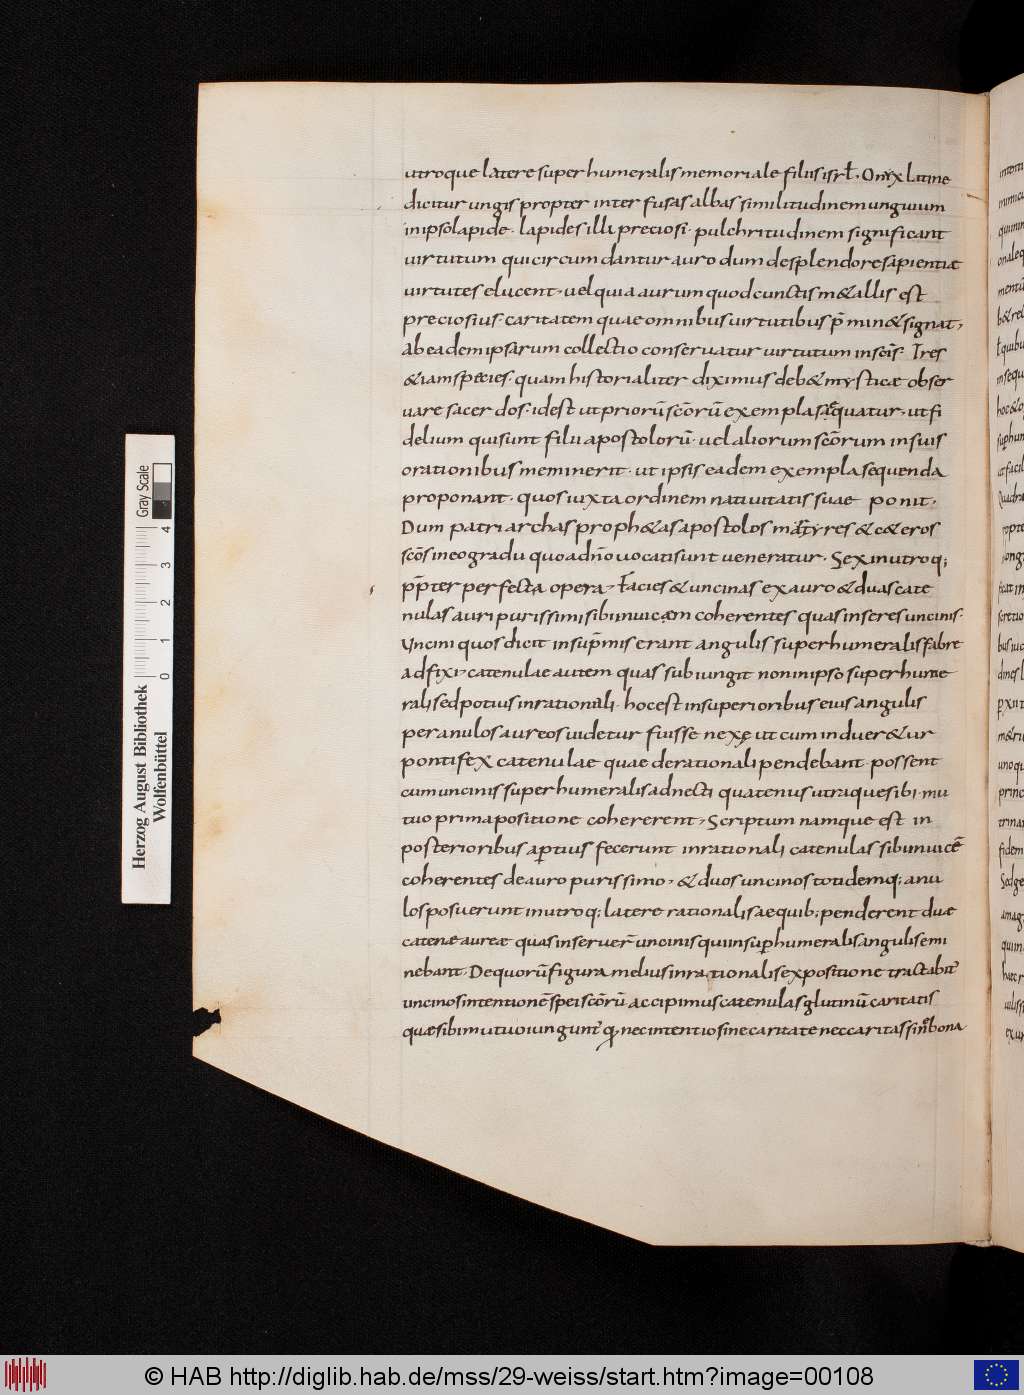 utroque latere superhumeralis memoriale filiis isrł. Onyx latine
dicitur ungis propter inter fusas albas similitudinem unguium
in ipso lapide. lapides illi preciosi. pulchritudinem significant
uirtutum qui circumdantur auro dum de splendore sapientiae
uirtutes elucent. uel quia aurum quod cunctis m&allis est
preciosius. caritatem quae omnibus uirtutibus p̄ min& signat,
ab eadem ipsarum collectio conseruatur uirtutum in sc̄is. Tres
&iam species. quam historialiter diximus deb& mysticae obser
uare sacerdos. id est ut priorū sc̄orū exempla sequatur. ut fi
delium qui sunt filii apostolorū. uel aliorum sc̄orum in suis
orationibus meminerit. ut ipsis eadem exempla sequenda
proponant. quos iuxta ordinem natiuitatis suae ponit.
Dum patriarchas proph&as apostolos martyres & c&eros
sc̄os in eo gradu quo ad n̄o uocati sunt ueneratur. Sex in utroq;
pp̄ter perfecta opera. Facies & uncinas ex auro & duas cate
nulas auri purissimi sibi inuicem coherentes quas inseres uncinis.
Uncini quos dicit in sup̄mis erant angulis superhumeralis fabre
adfixi. catenulae autem quas subiungit non in ipso superhume
rali sed potius in rationali. hoc est in superioribus eius angulis
per anulos aureos uidetur fuisse nexę ut cum induer&ur
pontifex catenulae quae de rationali pendebant possent
cum uncinis superhumeralis adnecti quatenus utraque sibi. mu
tuo prima positione cohererent, Scriptum namque est in
posterioribus apertius fecerunt in rationali catenulas sibi inuicē
coherentes de auro purissimo. & duos uncinos totidemq; anu
los posuerunt in utroq; latere rationalis a equib; penderent duae
catenae aureae quas inseruer̄ uncinis qui in sup̱humeralis angulis emi
nebant. De quorū figura melius in rationalis expositione tractabit᷑
uncinos intentionē spei sc̄orū accipimus catenulas glutinū caritatis
quae sibi mutuo iungunt᷑ q̱ nec intentio sine caritate nec caritas sine bona
Herzog August Bibliothek
Wolfenbüttel
Gray Scale
0 1 2 3 4
© HAB http://diglib.hab.de/mss/29-weiss/start.htm?image=00108